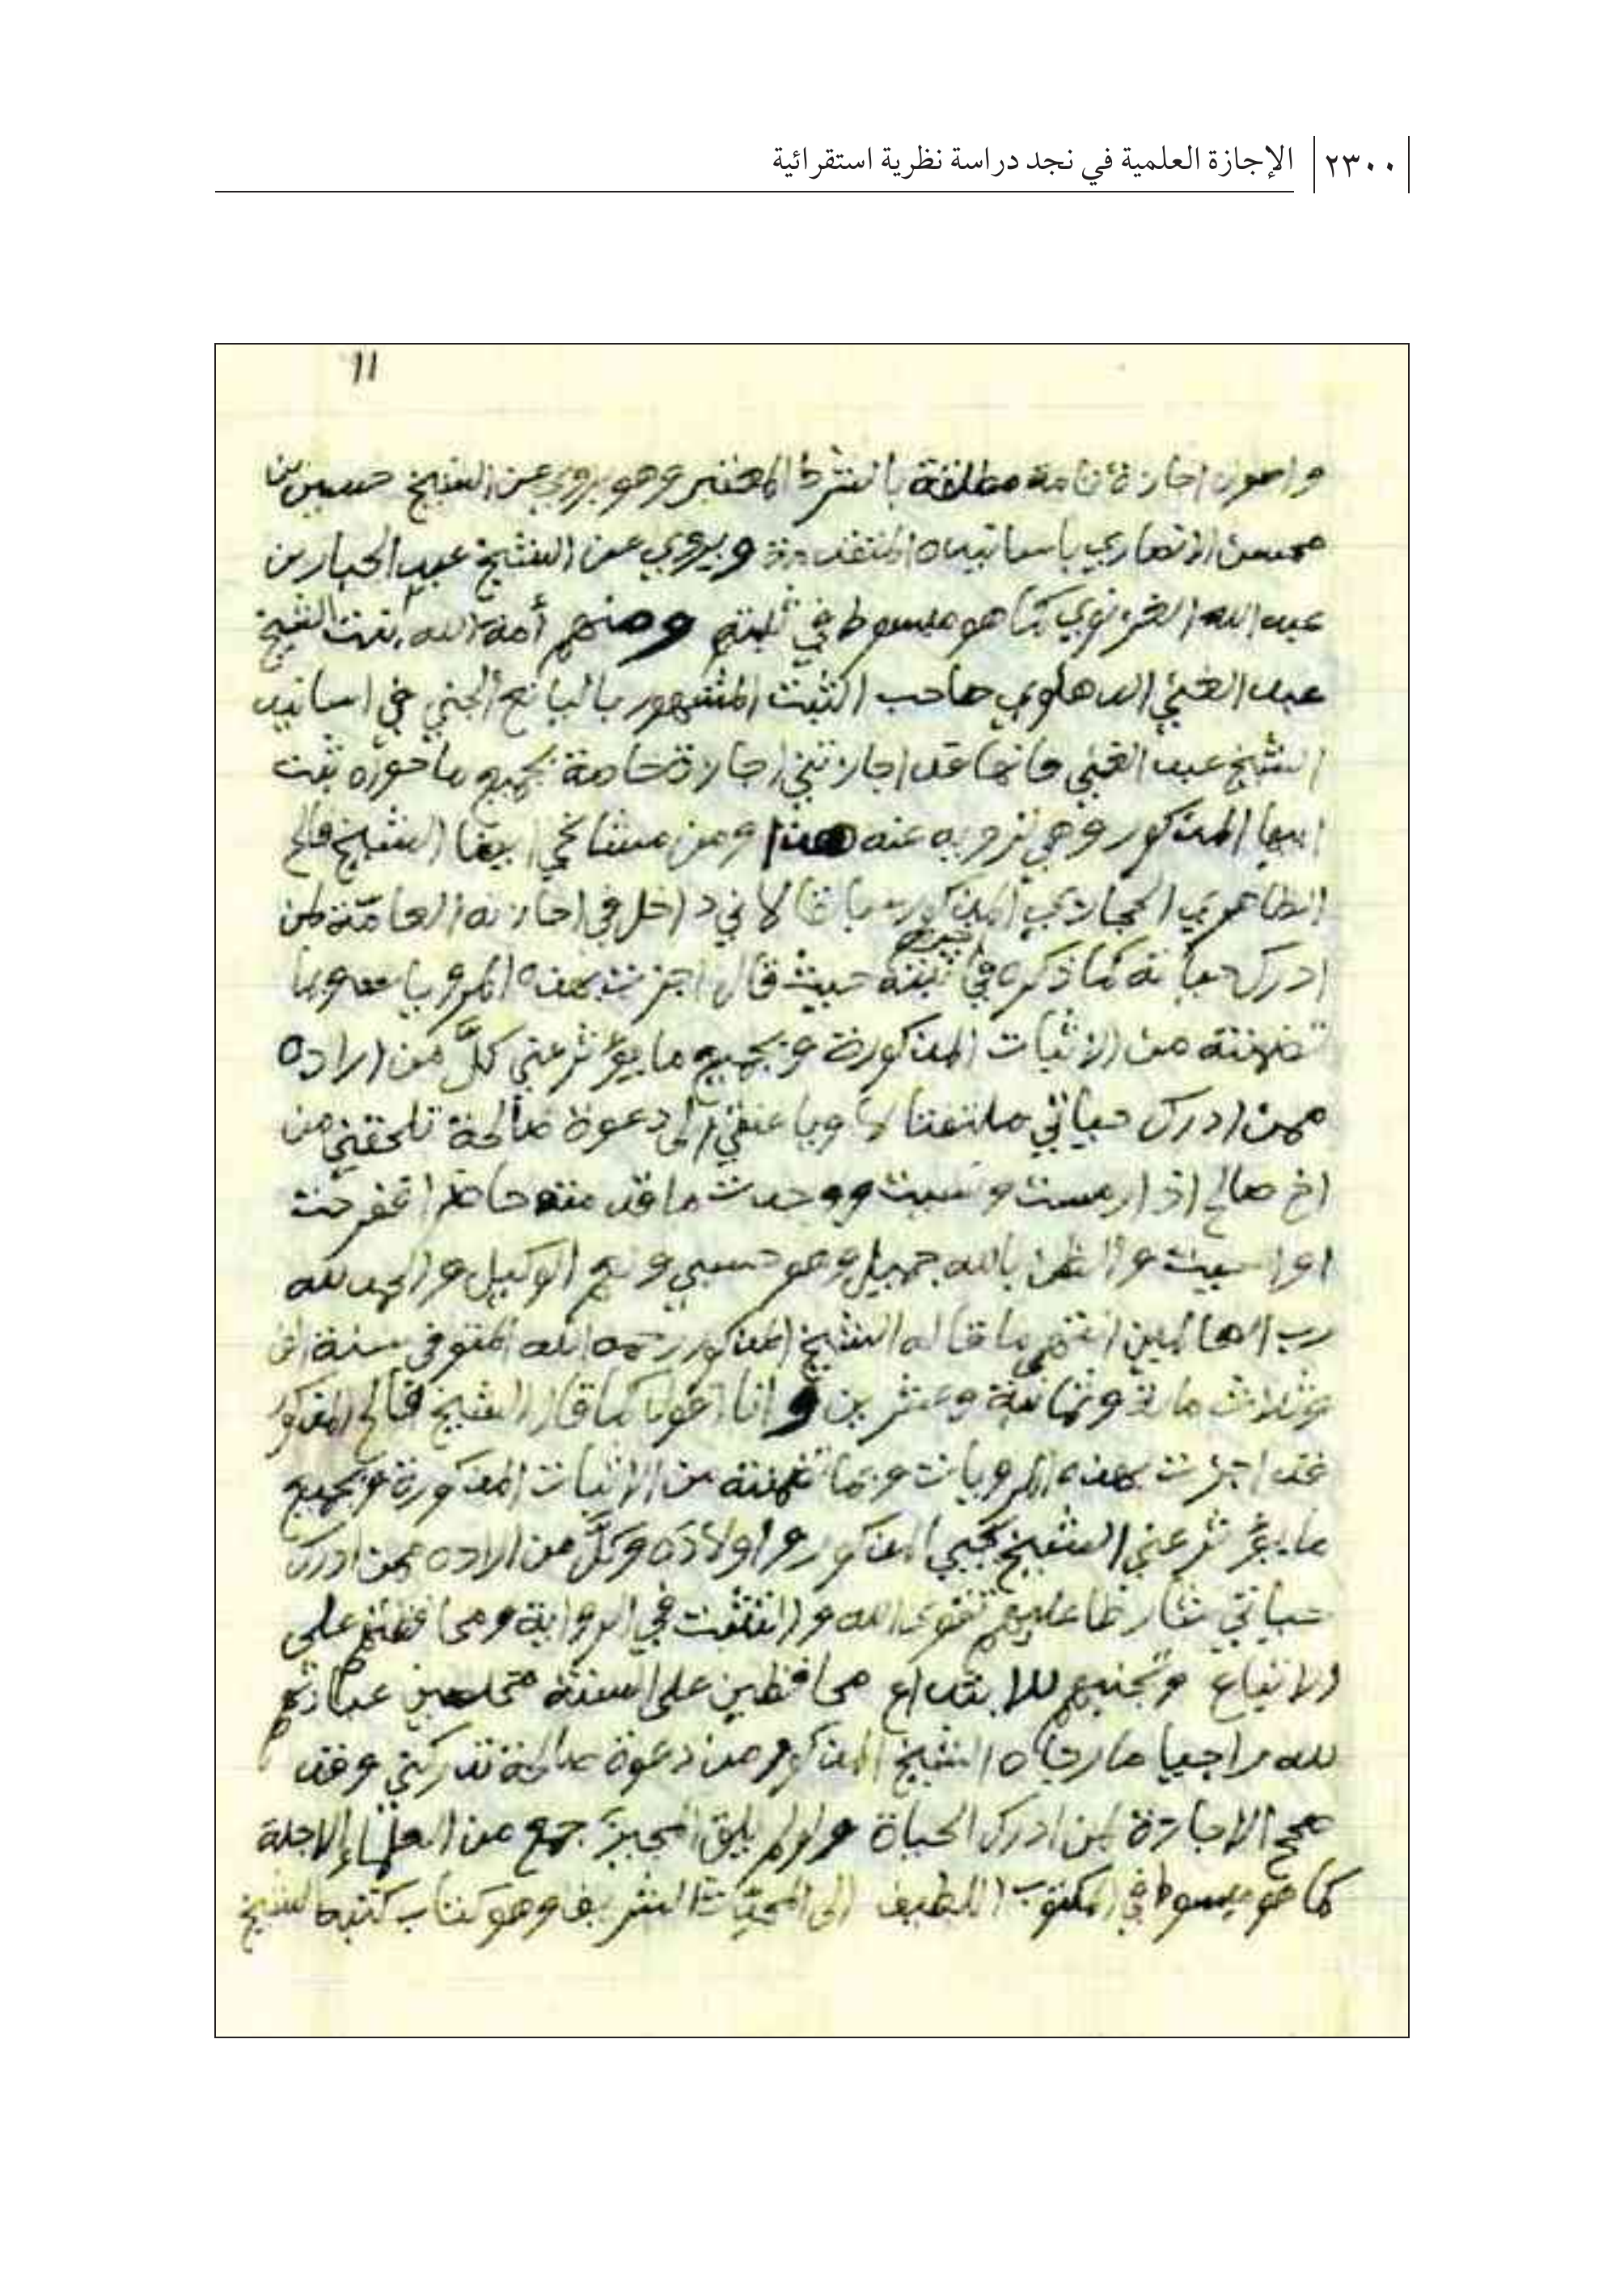 ٢٣٠٠ الإجازة العلمية في نجد دراسة نظرية استقرائية
١١
اجازة تامة مطلقة بالشرط المعتبر وهو يروي عن الشيخ حسين بن
محسن الانصاري باسانيده المتقدمة ويروي عن الشيخ عبد الجبار بن
عبد الله الغزنوي كما هو مبسوط في ثبته ومنهم أمة الله بنت الشيخ
عبد الغني الدهلوي صاحب الثبت المشهور باليانع الجني في اسانيد
الشيخ عبد الغني فانها قد اجازتني اجازة بجميع ما حوزه ثبت
ابيها المذكور وهي ترويه عنه هذا ومن مشائخي ايضا الشيخ فالح
الظاهري الحجازي المذكور سابقا لاني داخل في اجازته العامة لمن
ادرك حياته كما ذكره في ثبته حيث قال اجزت بهذه المرويا وبما
تضمنته من الاثبات المذكورة وبجميع ما يؤثر عني كلَّ من اراده
ممن ادرك حياتي الى دعوة صالحة تلحقني من
اخ صالح اذا ارمست ونسيت ووجدت ما قدمته حاضرا ففرحت
او اسيت والظن بالله جميل وهو حسبي ونعم الوكيل والحمد لله
رب العالمين انتهى ما قاله الشيخ المذكور رحمه الله المتوفى سنة الف
وثلاث مائة وثمانية وعشرين وانا اقول كما قال الشيخ فالح المذكور
قد اجزت بهذه المرويات وبما تضمنته من الاثبات المذكورة وبجميع
ما يؤثر عني الشيخ المذكور واولاده وكلَّ من اراده ممن ادرك
حياتي شارطا عليهم تقوى الله والتثبت في الرواية ومحافظتهم على
الاتباع وتجنبهم للابتداع محافظين على السنة مخلصين عبادتهم
لله راجيا ما رجاه الشيخ المذكور من دعوة صالحة تدركني وقد
صحح الاجازة لمن ادرك الحياة ولو لم يلق المجيز جمع من العلماء الاجلة
كما هو مبسوط في المكتوب اللطيف الى المحدث الشريف وهو كتاب كتبه الشيخ